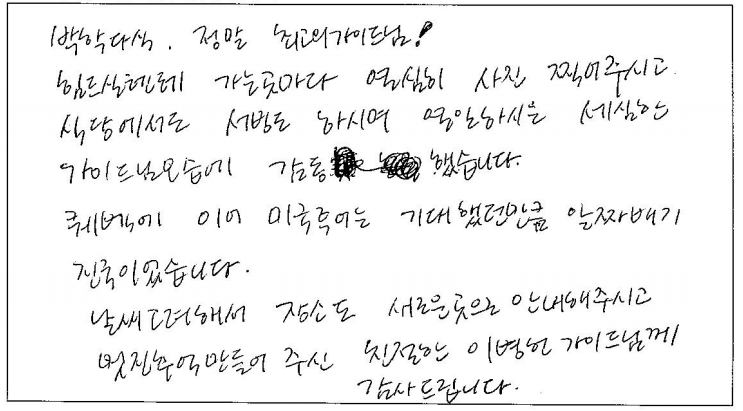 박학다식. 정말 최고의가이드님!
힘드실텐데 가는곳마다 열심히 사진 찍어주시고
식당에서도 서빙도 하시며 열일하시는 세심한
가이드님모습에 감동 했습니다.
퀘벡에 이어 미국투어는 기대했던만큼 알짜배기
진국이었습니다.
날씨고려해서 장소도 새로운곳으로 안내해주시고
멋진추억만들어 주신 친절한 이병헌 가이드님께
감사드립니다.